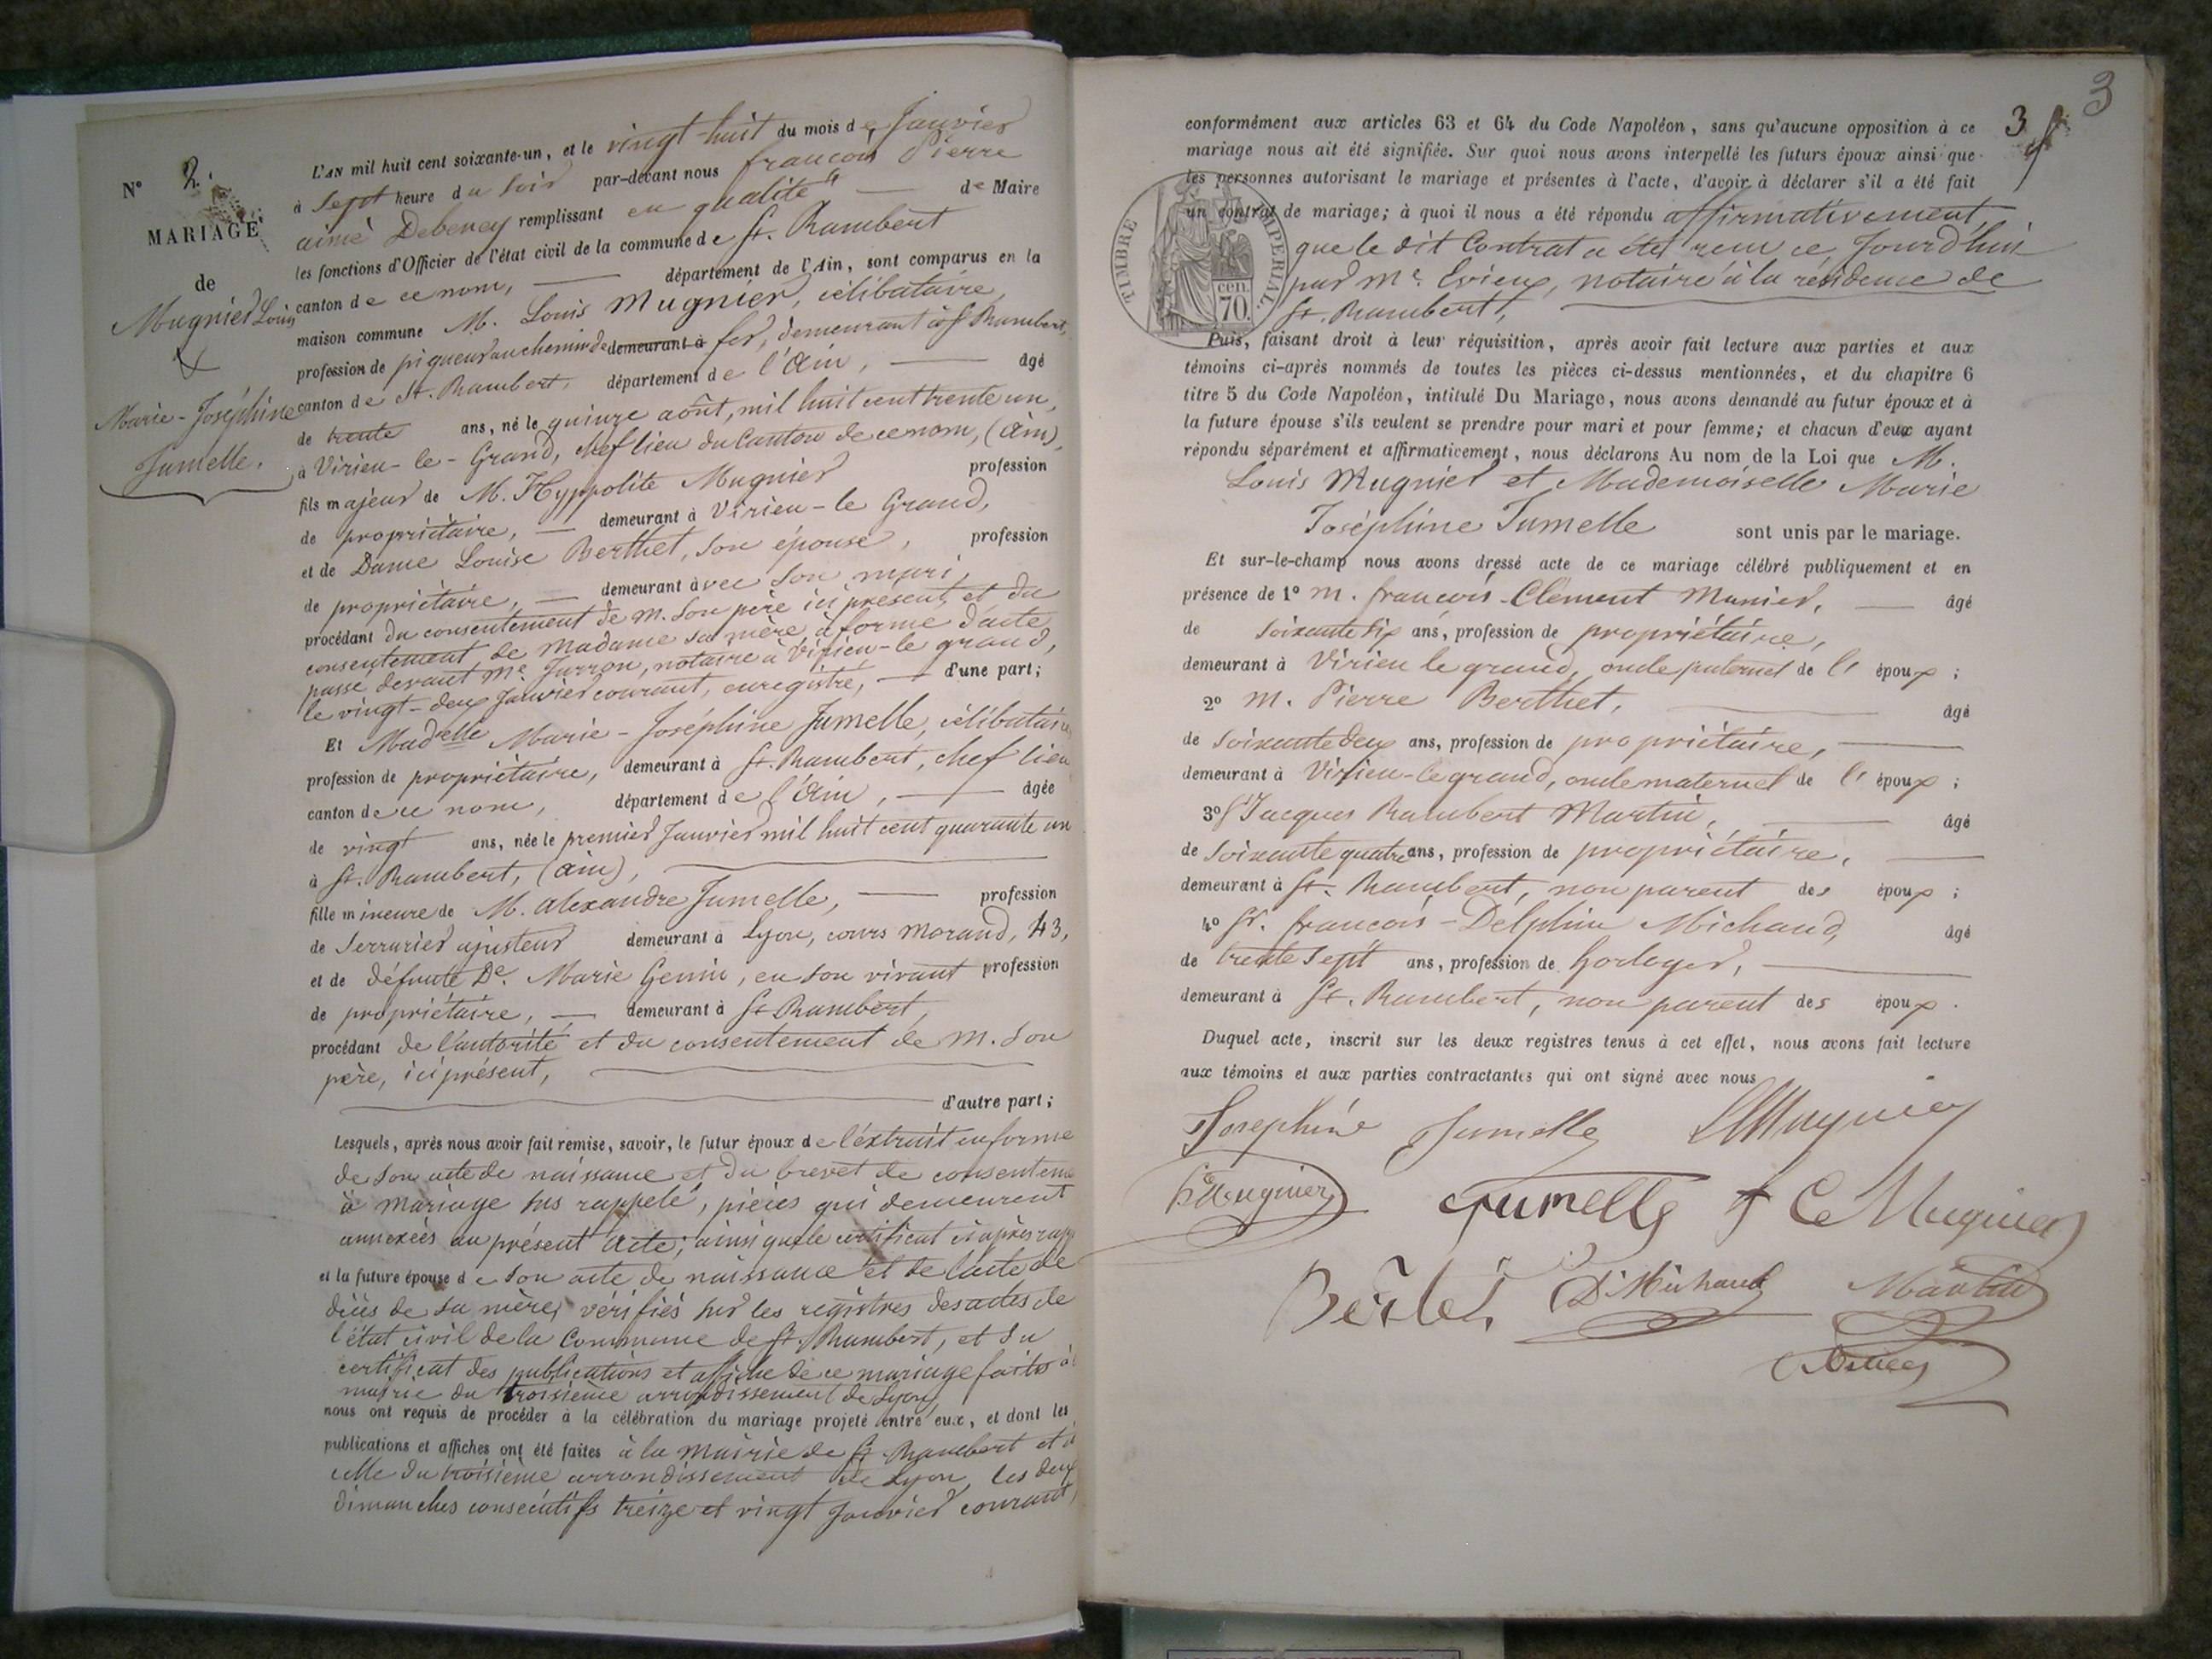 N° 2.
MARIAGE
de
Mugnier Louis
&
Marie-Joséphine
Jumelle.
L'AN mil huit cent soixante-un, et le vingt-huit du mois de Janvier
à Sept heure du soir par-devant nous françois Pierre
aimé Debeney remplissant en qualité de Maire
les fonctions d'Officier de l'état civil de la commune de St. Rambert
canton de ce nom, département de l'Ain, sont comparus en la
maison commune M. Louis Mugnier, célibataire,
profession de piqueur au chemin de demeurant à fer, demeurant à St Rambert,
canton de St. Rambert, département de l'Ain, âgé
de trente ans, né le quinze août, mil huit cent trente un,
à Virieu-le-Grand, chef lieu du Canton de ce nom, (Ain),
fils majeur de M. Hyppolite Mugnier profession
de propriétaire, demeurant à Virieu-le Grand,
et de Dame Louise Berthet, son épouse, profession
de propriétaire, demeurant avec son mari,
procédant du consentement de M. Son père ici présent, et du
consentement de Madame sa mère, à forme d'acte
passé devant Me. Jurron, notaire à Virieu-le grand,
le vingt-deux Janvier courant, enregistré, d'une part;
Et Madelle Marie-Joséphine Jumelle, célibataire
profession de propriétaire, demeurant à St. Rambert, chef lieu
canton de ce nom, département de l'Ain, âgée
de vingt ans, née le premier Janvier mil huit cent quarante un
à St. Rambert, (Ain),
fille mineure de M. alexandre Jumelle, profession
de Serrurier ajusteur demeurant à Lyon, cours Morand, 43,
et de défunte De. Marie Genin, en son vivant profession
de propriétaire, demeurant à St Rambert,
procédant de l'autorité et du consentement de M. Son
père, ici présent,
d'autre part;
Lesquels, après nous avoir fait remise, savoir, le futur époux de l'extrait en forme
de son acte de naissance et du brevet de consenteme
à mariage sus rappelé, pièces qui demeurent
annexées au présent acte, ainsi que le certificat ci après rapp
et la future épouse de son acte de naissance et de l'acte de
décès de sa mère, vérifiés sur les registres des actes de
l'état civil de la Commune de St. Rambert, et du
certificat des publications et affiche de ce mariage faites à
mairie du troisième arrondissement de Lyon,
nous ont requis de procéder à la célébration du mariage projeté entre eux, et dont les
publications et affiches ont été faites à la Mairie de St Rambert et à
celle du troisième arrondissement de Lyon, les deux
dimanches consécutifs treize et vingt Janvier courant,
3
3
conformément aux articles 63 et 64 du Code Napoléon, sans qu'aucune opposition à ce
mariage nous ait été signifiée. Sur quoi nous avons interpellé les futurs époux ainsi que
les personnes autorisant le mariage et présentes à l'acte, d'avoir à déclarer s'il a été fait
un contrat de mariage; à quoi il nous a été répondu affirmativement,
que le dit Contrat a été reçu ce Jourd'hui
par Me. Evieux, notaire à la résidence de
St. Rambert,
TIMBRE IMPERIAL.
cen.
70.
Puis, faisant droit à leur réquisition, après avoir fait lecture aux parties et aux
témoins ci-après nommés de toutes les pièces ci-dessus mentionnées, et du chapitre 6
titre 5 du Code Napoléon, intitulé Du Mariage, nous avons demandé au futur époux et à
la future épouse s'ils veulent se prendre pour mari et pour femme; et chacun d'eux ayant
répondu séparément et affirmativement, nous déclarons Au nom de la Loi que M.
Louis Mugnier et Mademoiselle Marie
Joséphine Jumelle sont unis par le mariage.
Et sur-le-champ nous avons dressé acte de ce mariage célébré publiquement et en
présence de 1° M. françois-Clément Munier, âgé
de soixante six ans, profession de propriétaire,
demeurant à Virieu le grand, oncle paternel de l' époux;
2° M. Pierre Berthet, âgé
de soixante deux ans, profession de propriétaire,
demeurant à Virieu-le grand, oncle maternel de l' époux;
3° Sr Jacques Rambert Martin, âgé
de soixante quatre ans, profession de propriétaire,
demeurant à St. Rambert, non parent des époux;
4° Sr. françois-Delphin Michaud, âgé
de trente sept ans, profession de horloger,
demeurant à St. Rambert, non parent des époux.
Duquel acte, inscrit sur les deux registres tenus à cet effet, nous avons fait lecture
aux témoins et aux parties contractantes qui ont signé avec nous
Josephine Jumelle LMugnier
hte Mugnier Jumelle f Ce Mugnier
Bertet D. Michaud Martin